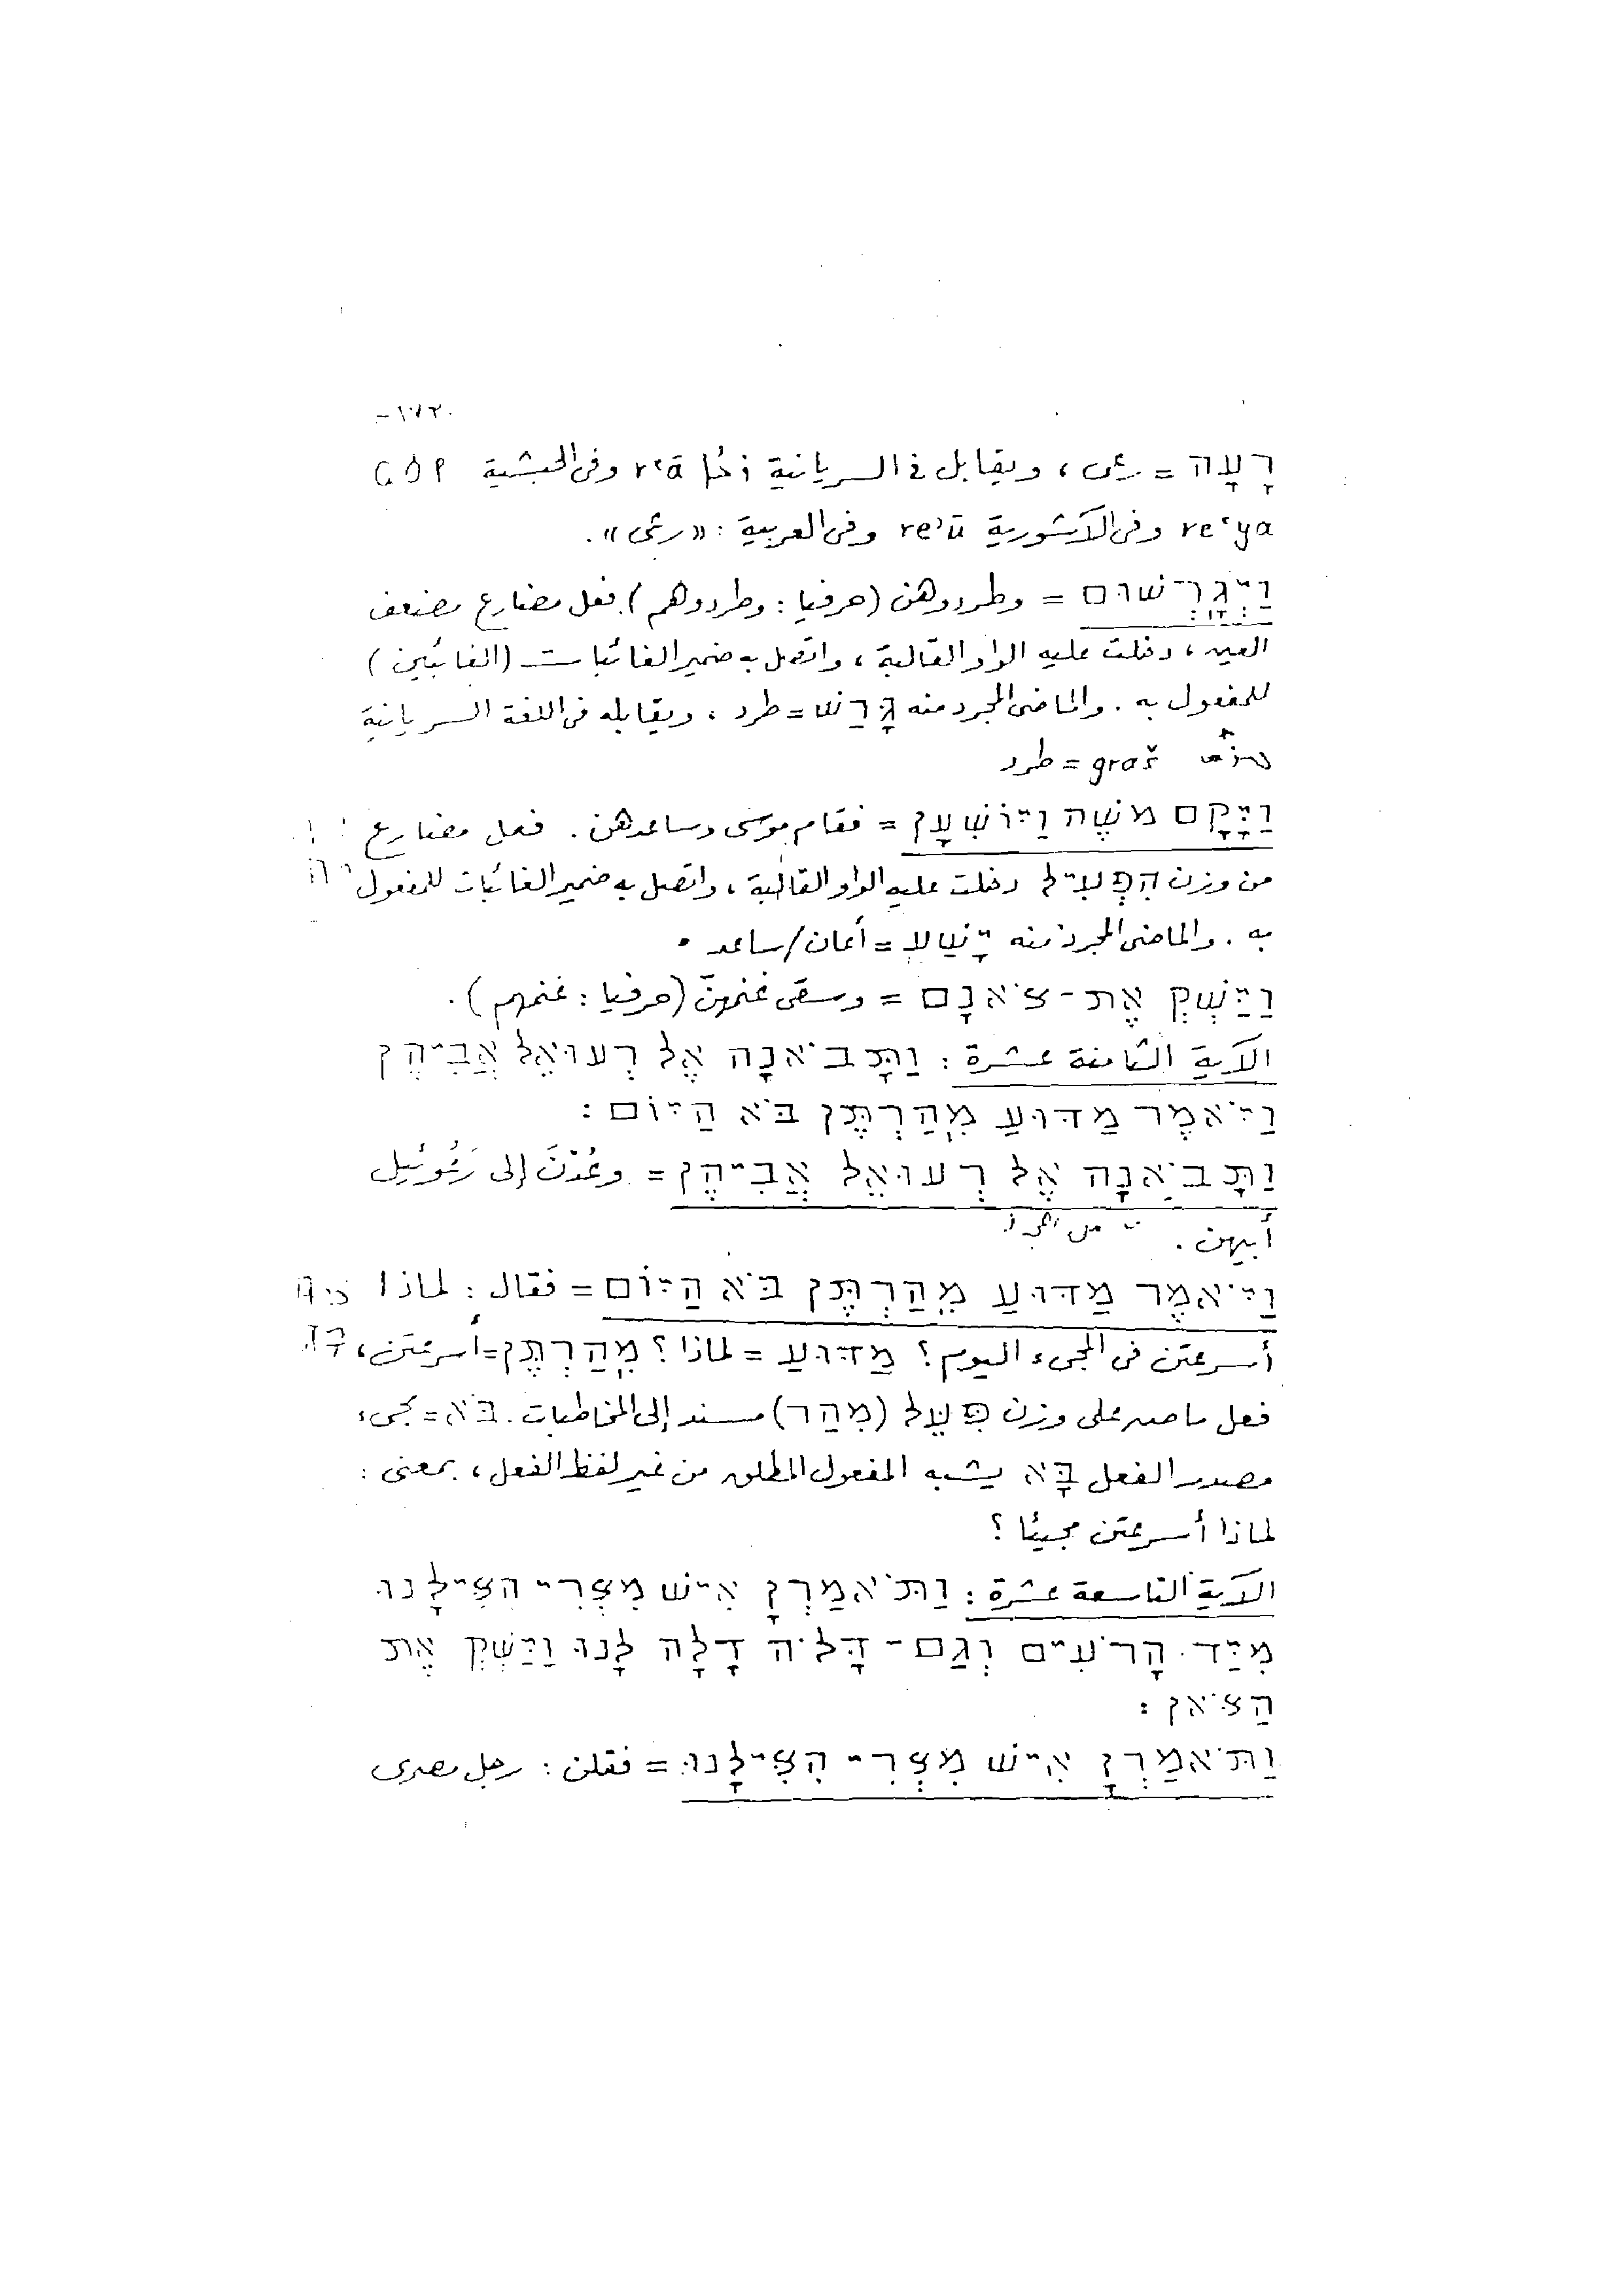 -١٧٢-
רָעָה = رعى، ويقابل فى السريانية ܪܥܐ r‘ā وفى الحبشية ረዐየ
re‘ya وفى الآشورية re’ū وفى العربية : «رعى» .
וַיְגָרְשׁוּם = وطردوهن (حرفيا : وطردوهم) . فعل مضارع مضعف
العين، دخلت عليه الواو القالبة، واتصل به ضمير الغائبات (الغائبين)
للمفعول به . والماضى المجرد منه גָּרַשׁ = طرد ، ويقابله فى اللغة السريانية
ܓܪܫ graš = طرد
וַיָּקָם מֹשֶׁה וַיּוֹשִׁעָן = فقام موسى وساعدهن . فعل مضارع
من وزن הִפְעִיל دخلت عليه الواو القالبة، واتصل به ضمير الغائبات للمفعول
به . والماضى المجرد منه יָשַׁע = أعان/ساعد .
וַיַּשְׁקְ אֶת-צֹאנָם = وسقى غنمهنّ (حرفيا : غنمهم) .
الآية الثامنة عشرة : וַתָּבֹאנָה אֶל רְעוּאֵל אֲבִיהֶן
וַיֹּאמֶר מַדּוּעַ מִהַרְתֶּן בֹּא הַיּוֹם :
וַתָּבֹאנָה אֶל רְעוּאֵל אֲבִיהֶן = وعُدْنَ إلى رَعُوئيل
أبيهن .
וַיֹּאמֶר מַדּוּעַ מִהַרְתֶּן בֹּא הַיּוֹם = فقال : لماذا
أسرعتن فى المجىء اليوم؟ מַדּוּעַ = لماذا؟ מִהַרְתֶּן = أسرعتن،
فعل ماض على وزن פִּעֵל (מִהַר) مسند إلى المخاطبات . בֹּא = مجىء
مصدر الفعل בָּא يشبه المفعول المطلق من غير لفظ الفعل، بمعنى :
لماذا أسرعتن مجيئا ؟
الآية التاسعة عشرة : וַתֹּאמַרְןָ אִישׁ מִצְרִי הִצִּילָנוּ
מִיַּד הָרֹעִים וְגַם-דָּלֹה דָלָה לָנוּ וַיַּשְׁקְ אֶת
הַצֹּאן :
וַתֹּאמַרְןָ אִישׁ מִצְרִי הִצִּילָנוּ = فقلن : رجل مصرى